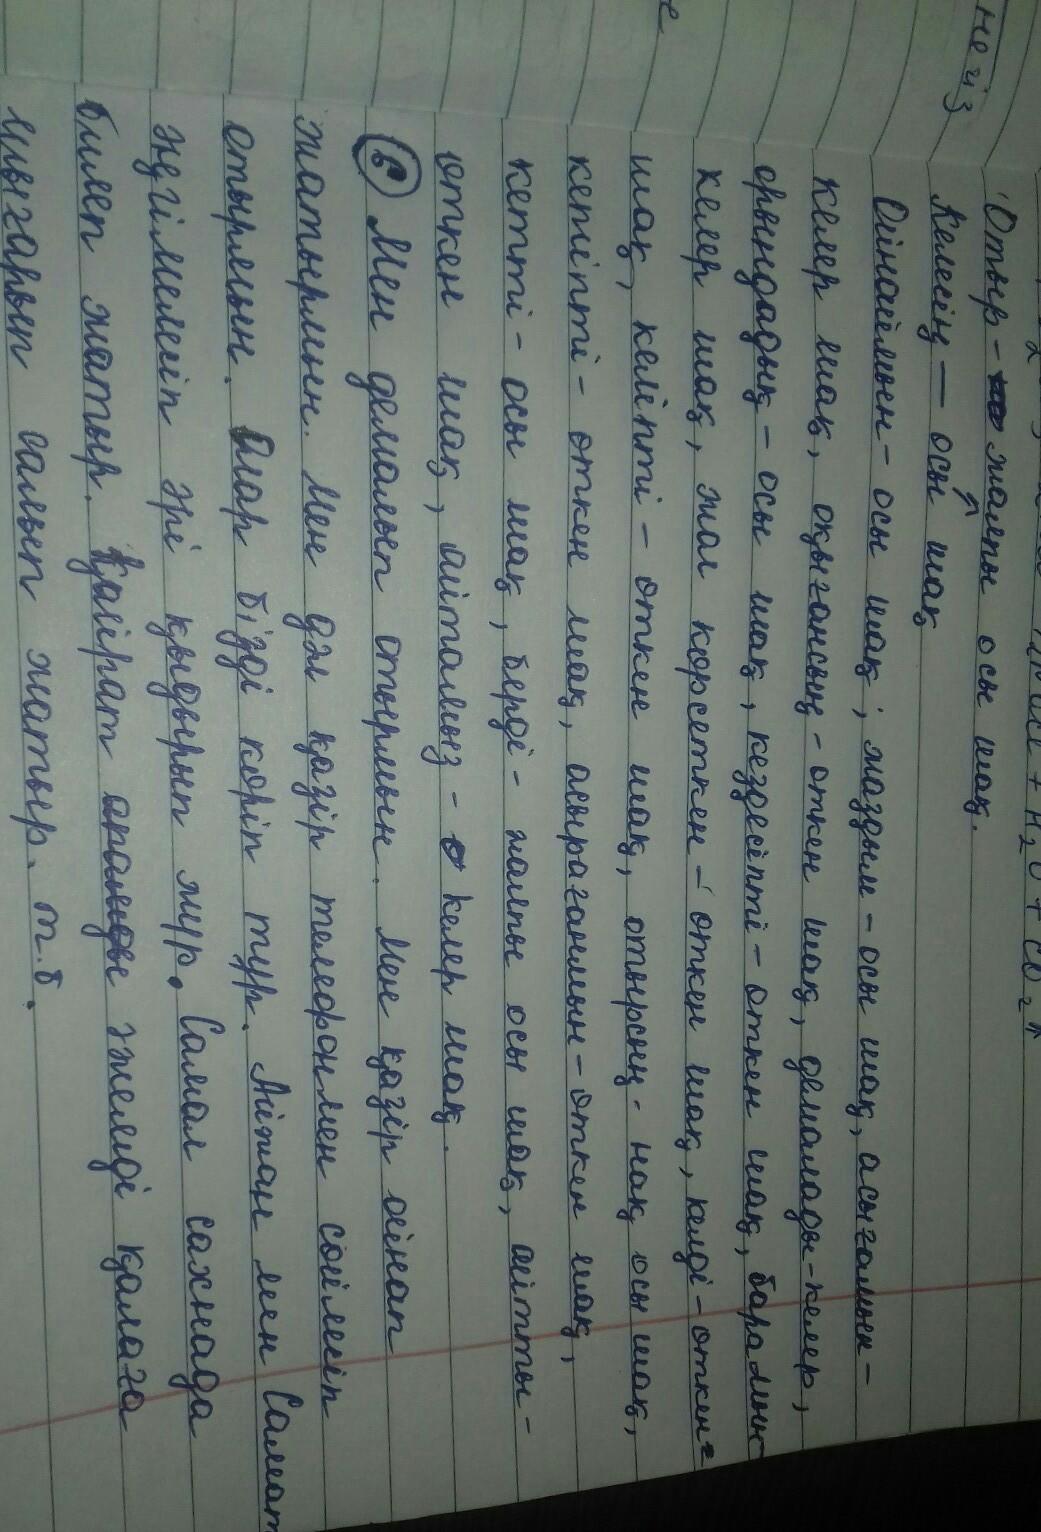 не из
е
H₂O + CO₂↑
Отыр - жалпы осы шақ.
Келесің — осы шақ
Ойнаймын - осы шақ, жаздым - осы шақ, асығамын -
келер шақ, оқығансың - откен шақ, демалады - келер,
орындадық - осы шақ, кездесіпті - откен шақ, барамын -
келер шақ, жол корсеткен - откен шақ, келді - откен
шақ, келіпті - откен шақ, отырсың - нақ осы шақ,
кетіпті - откен шақ, асырағанмын - откен шақ,
кетті - осы шақ, берді - жалпы осы шақ, айтты -
откен шақ, айтамыз - келер шақ.
Мен демалып отырмын. Мен қазір ойнап
жатырмын. Мен дәл қазір телефонмен сөйлесіп
отырмын. Олар бізді коріп тұр. Айжан мен Самат
әңгімелесіп әрі қыдырып жүр. Самал сахнада
билеп жатыр. Қайрат әкелді қалаға
шығарып салып жатыр. т.б.